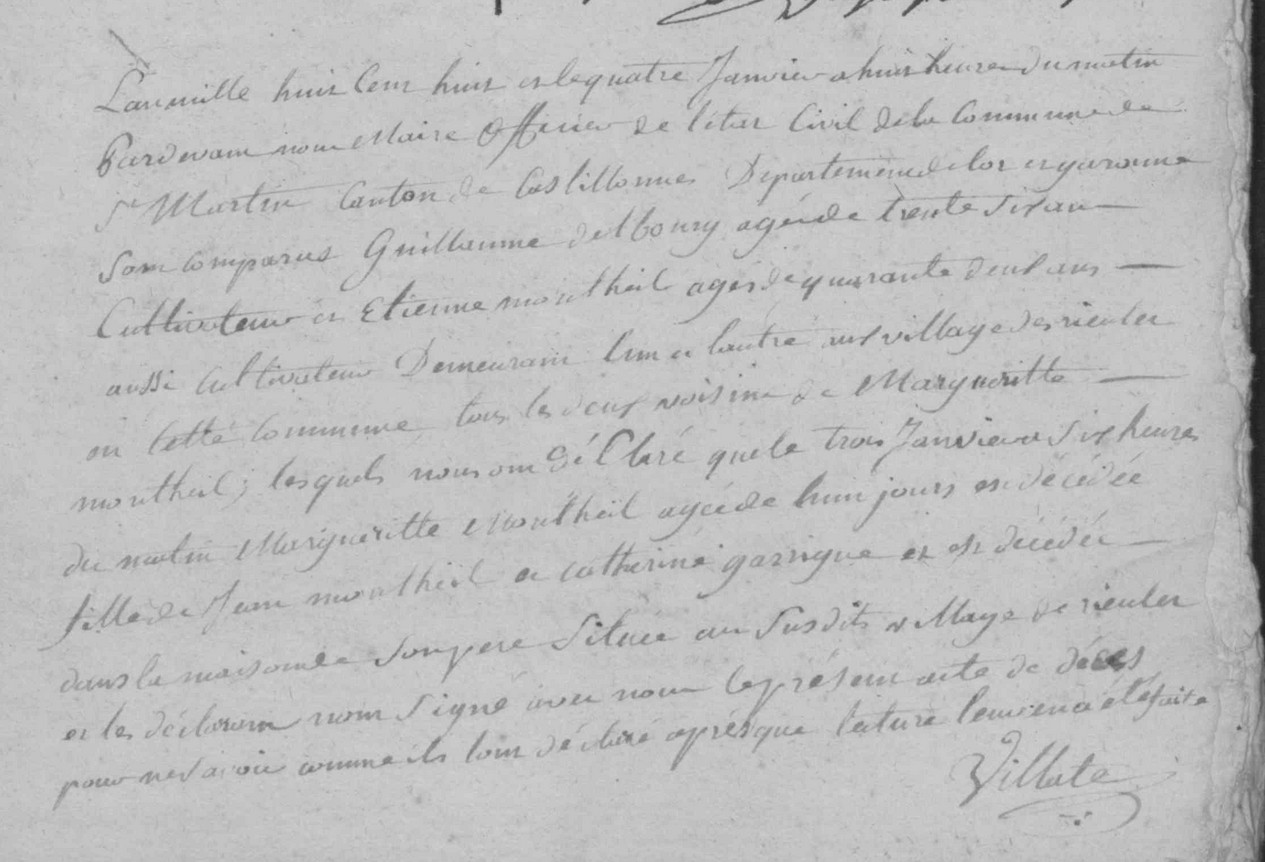 L'an mille huit Cent huit et le quatre Janvier a huit heures du matin
Pardevant nous Maire Officier de l'état Civil de la Commune de
St Martin Canton de Castillonnes Département de lot et garonne
Sont comparus Guillaume delboury agé de trente six ans
Cultivateur et Etienne montheil agés de quarante deux ans
aussi Cultivateur Demeurant l'un et lautre aux village de rieuler
en cette Commune tous les deux voisins de Margueritte
montheil; lesquels nous ont déClaré que le trois Janvier a six heures
du matin Margueritte Montheil agée de huit jours est décédée
fille de Jean montheil et catherine garrigue et est décédée
dans la maison de son pere Située au susdits village de rieuler
et les déclarant nont Signé avec nous le présent acte de décès
pour ne savoir comme ils lont déclaré après que lecture leur en a été faite
Villate